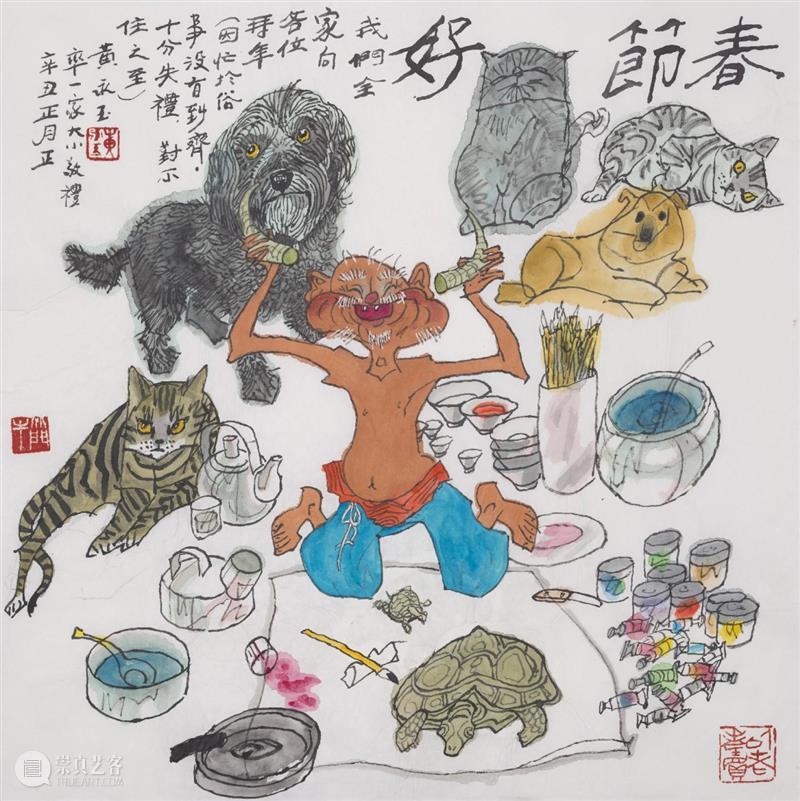 春節好
我們全
家向
各位
拜年
（因忙於俗
事没有到齊.
十分失禮.對不
住之至）
黃永玉
率一家大小敬禮
辛丑正月正
崇真艺客
TRUEART.COM